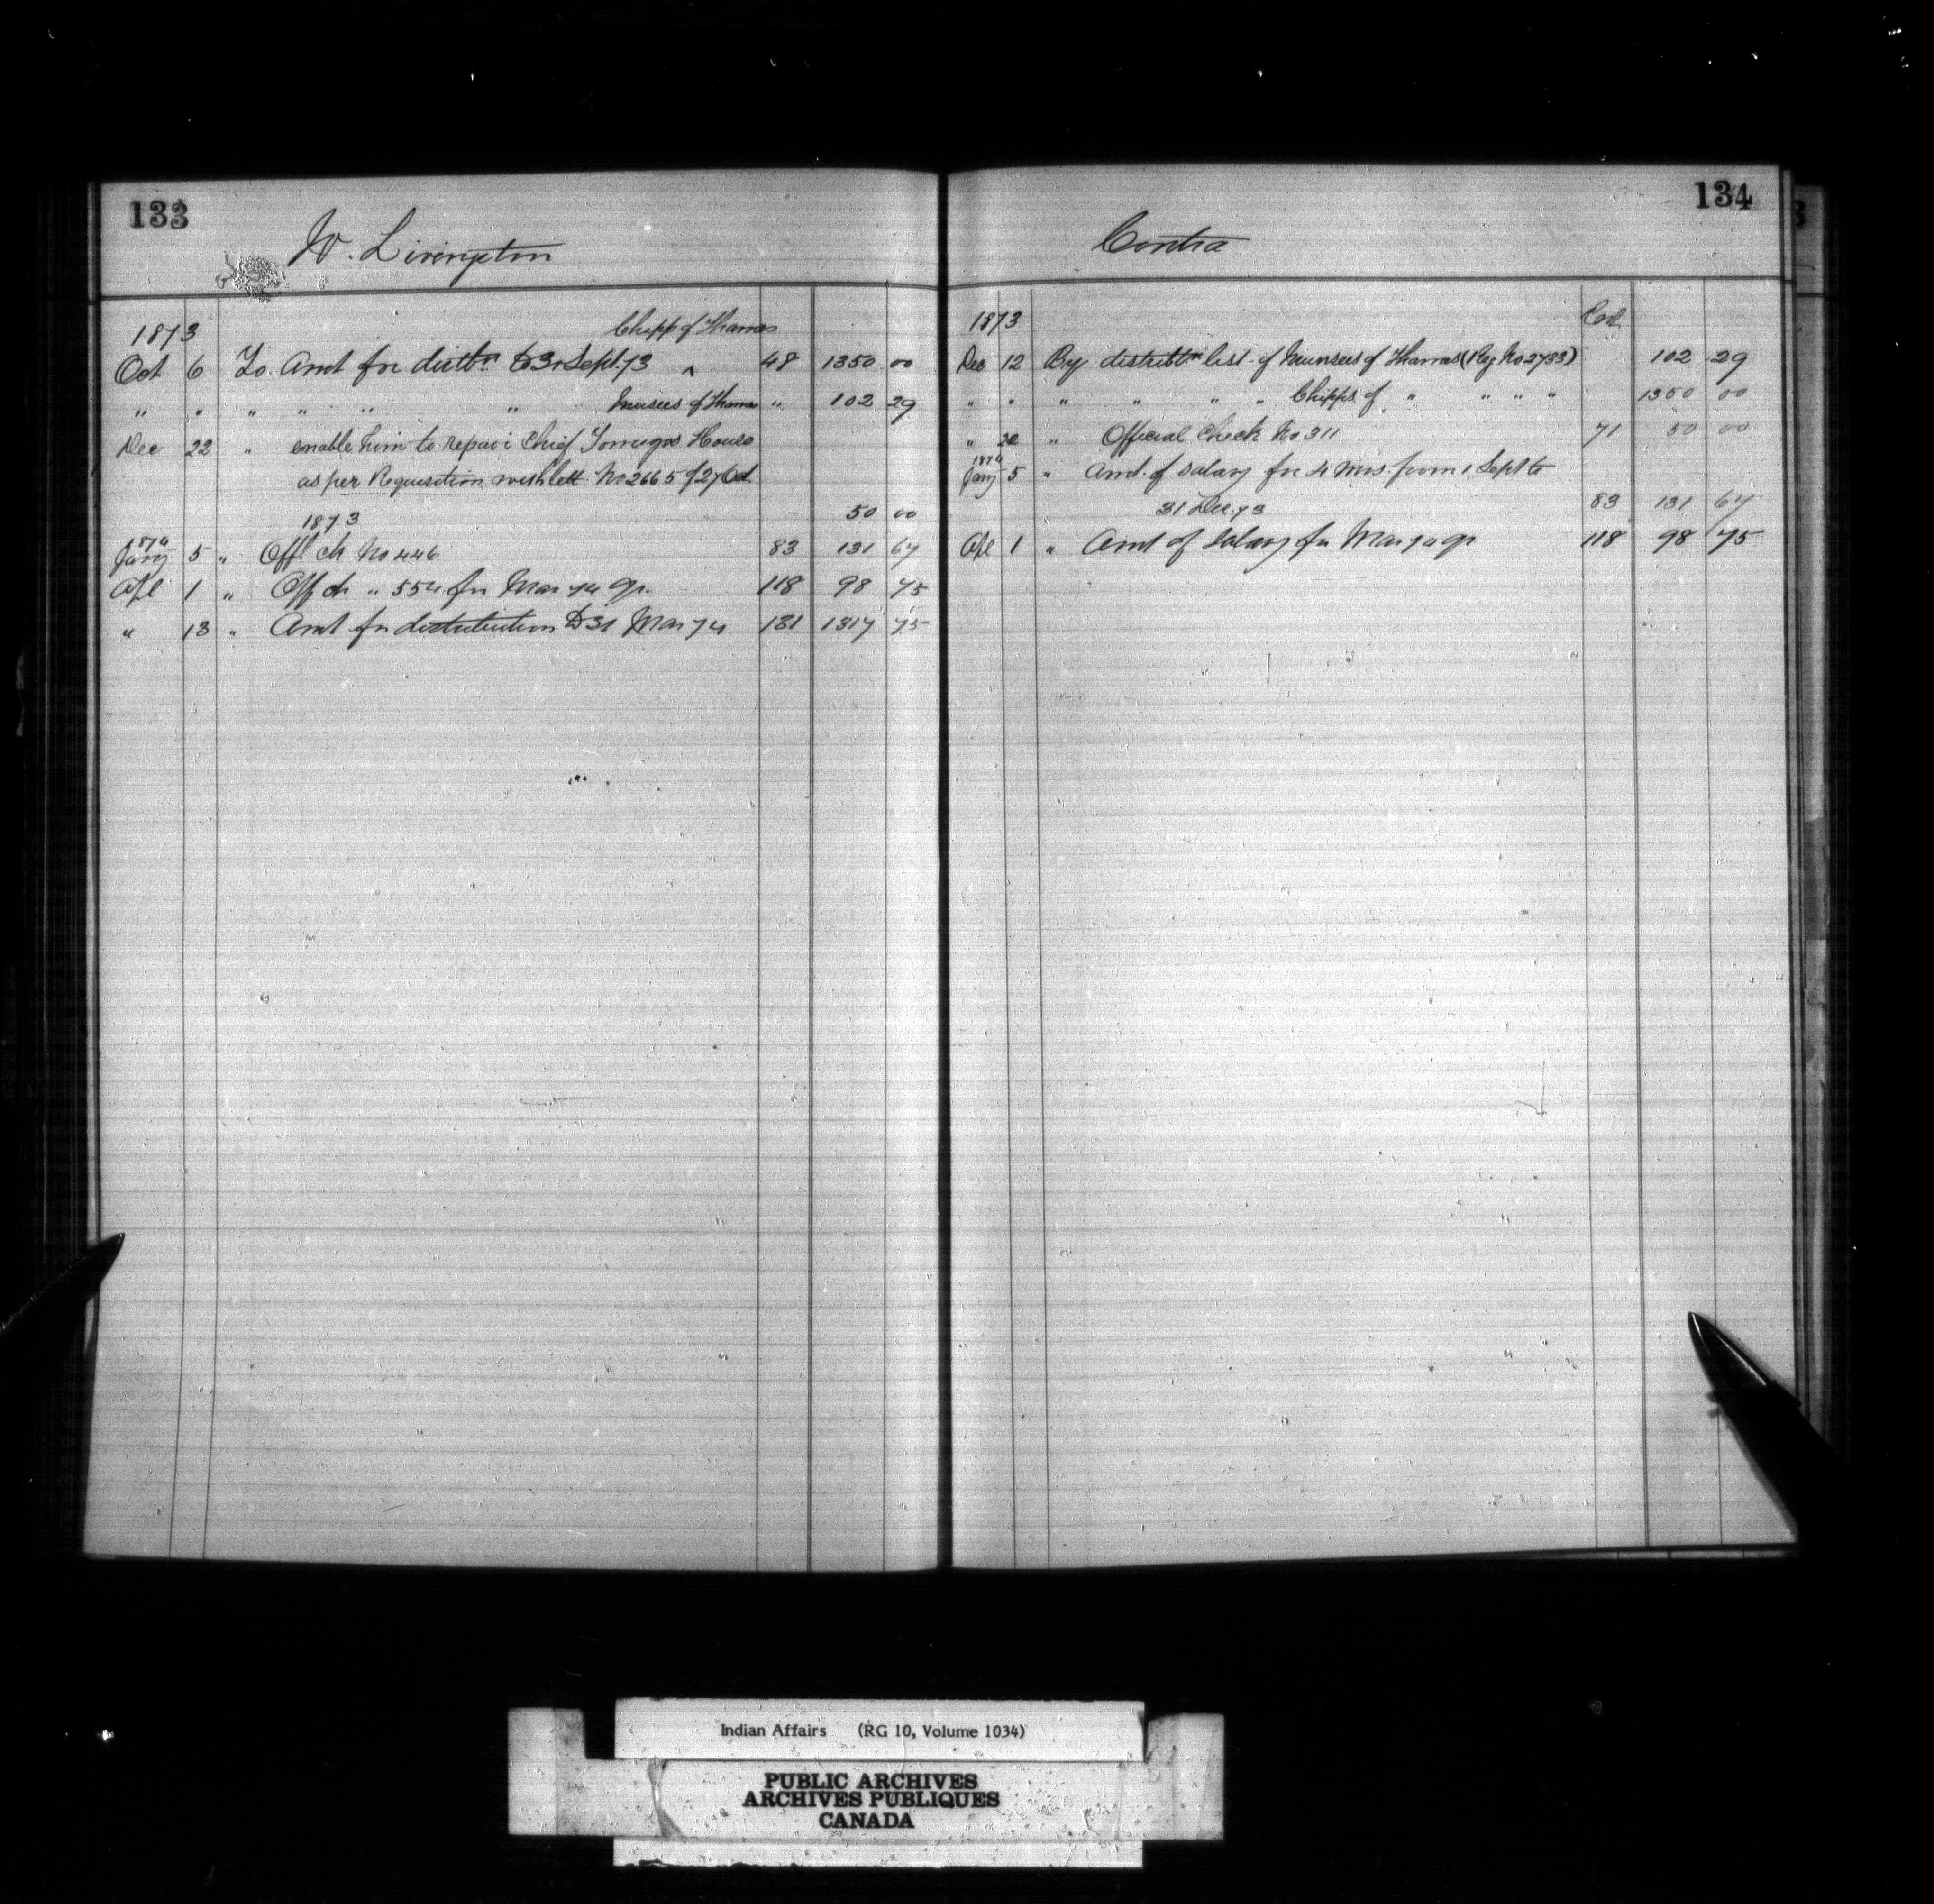 133
W. Livingston
1873
Chipp of Thames
Oct 6 To Amt for distbn to 30 Sept. 73 ^ 48 1350 00
" " " " " " Munsees of Thames " 102 29
Dec 22 " enable him to repair Chief House
as per Requisition with lett. No 2665 of 27 Oct
1873 50 00
1874
Jany 5 " Offl ch No 446 83 131 67
Apl 1 " Off ch " 554 for Mar 74 qr. 118 98 75
" 13 " Amt for distribution to 31 Mar 74 131 1317 75
134
Contra
1873
Dec 12 By distribtn list of Munsees of Thames (Reg No 2733) 102 29
" " " " " " Chipps of " " " " 1350 00
" 22 " Official Check No 311 71 50 00
1874
Jany 5 " Amt. of salary for 4 mos. from 1 Sept to
31 Dec. 73 83 131 67
Apl 1 " Amt of Salary for Mar 74 qr 118 98 75
Indian Affairs (RG 10, Volume 1034)
PUBLIC ARCHIVES
ARCHIVES PUBLIQUES
CANADA